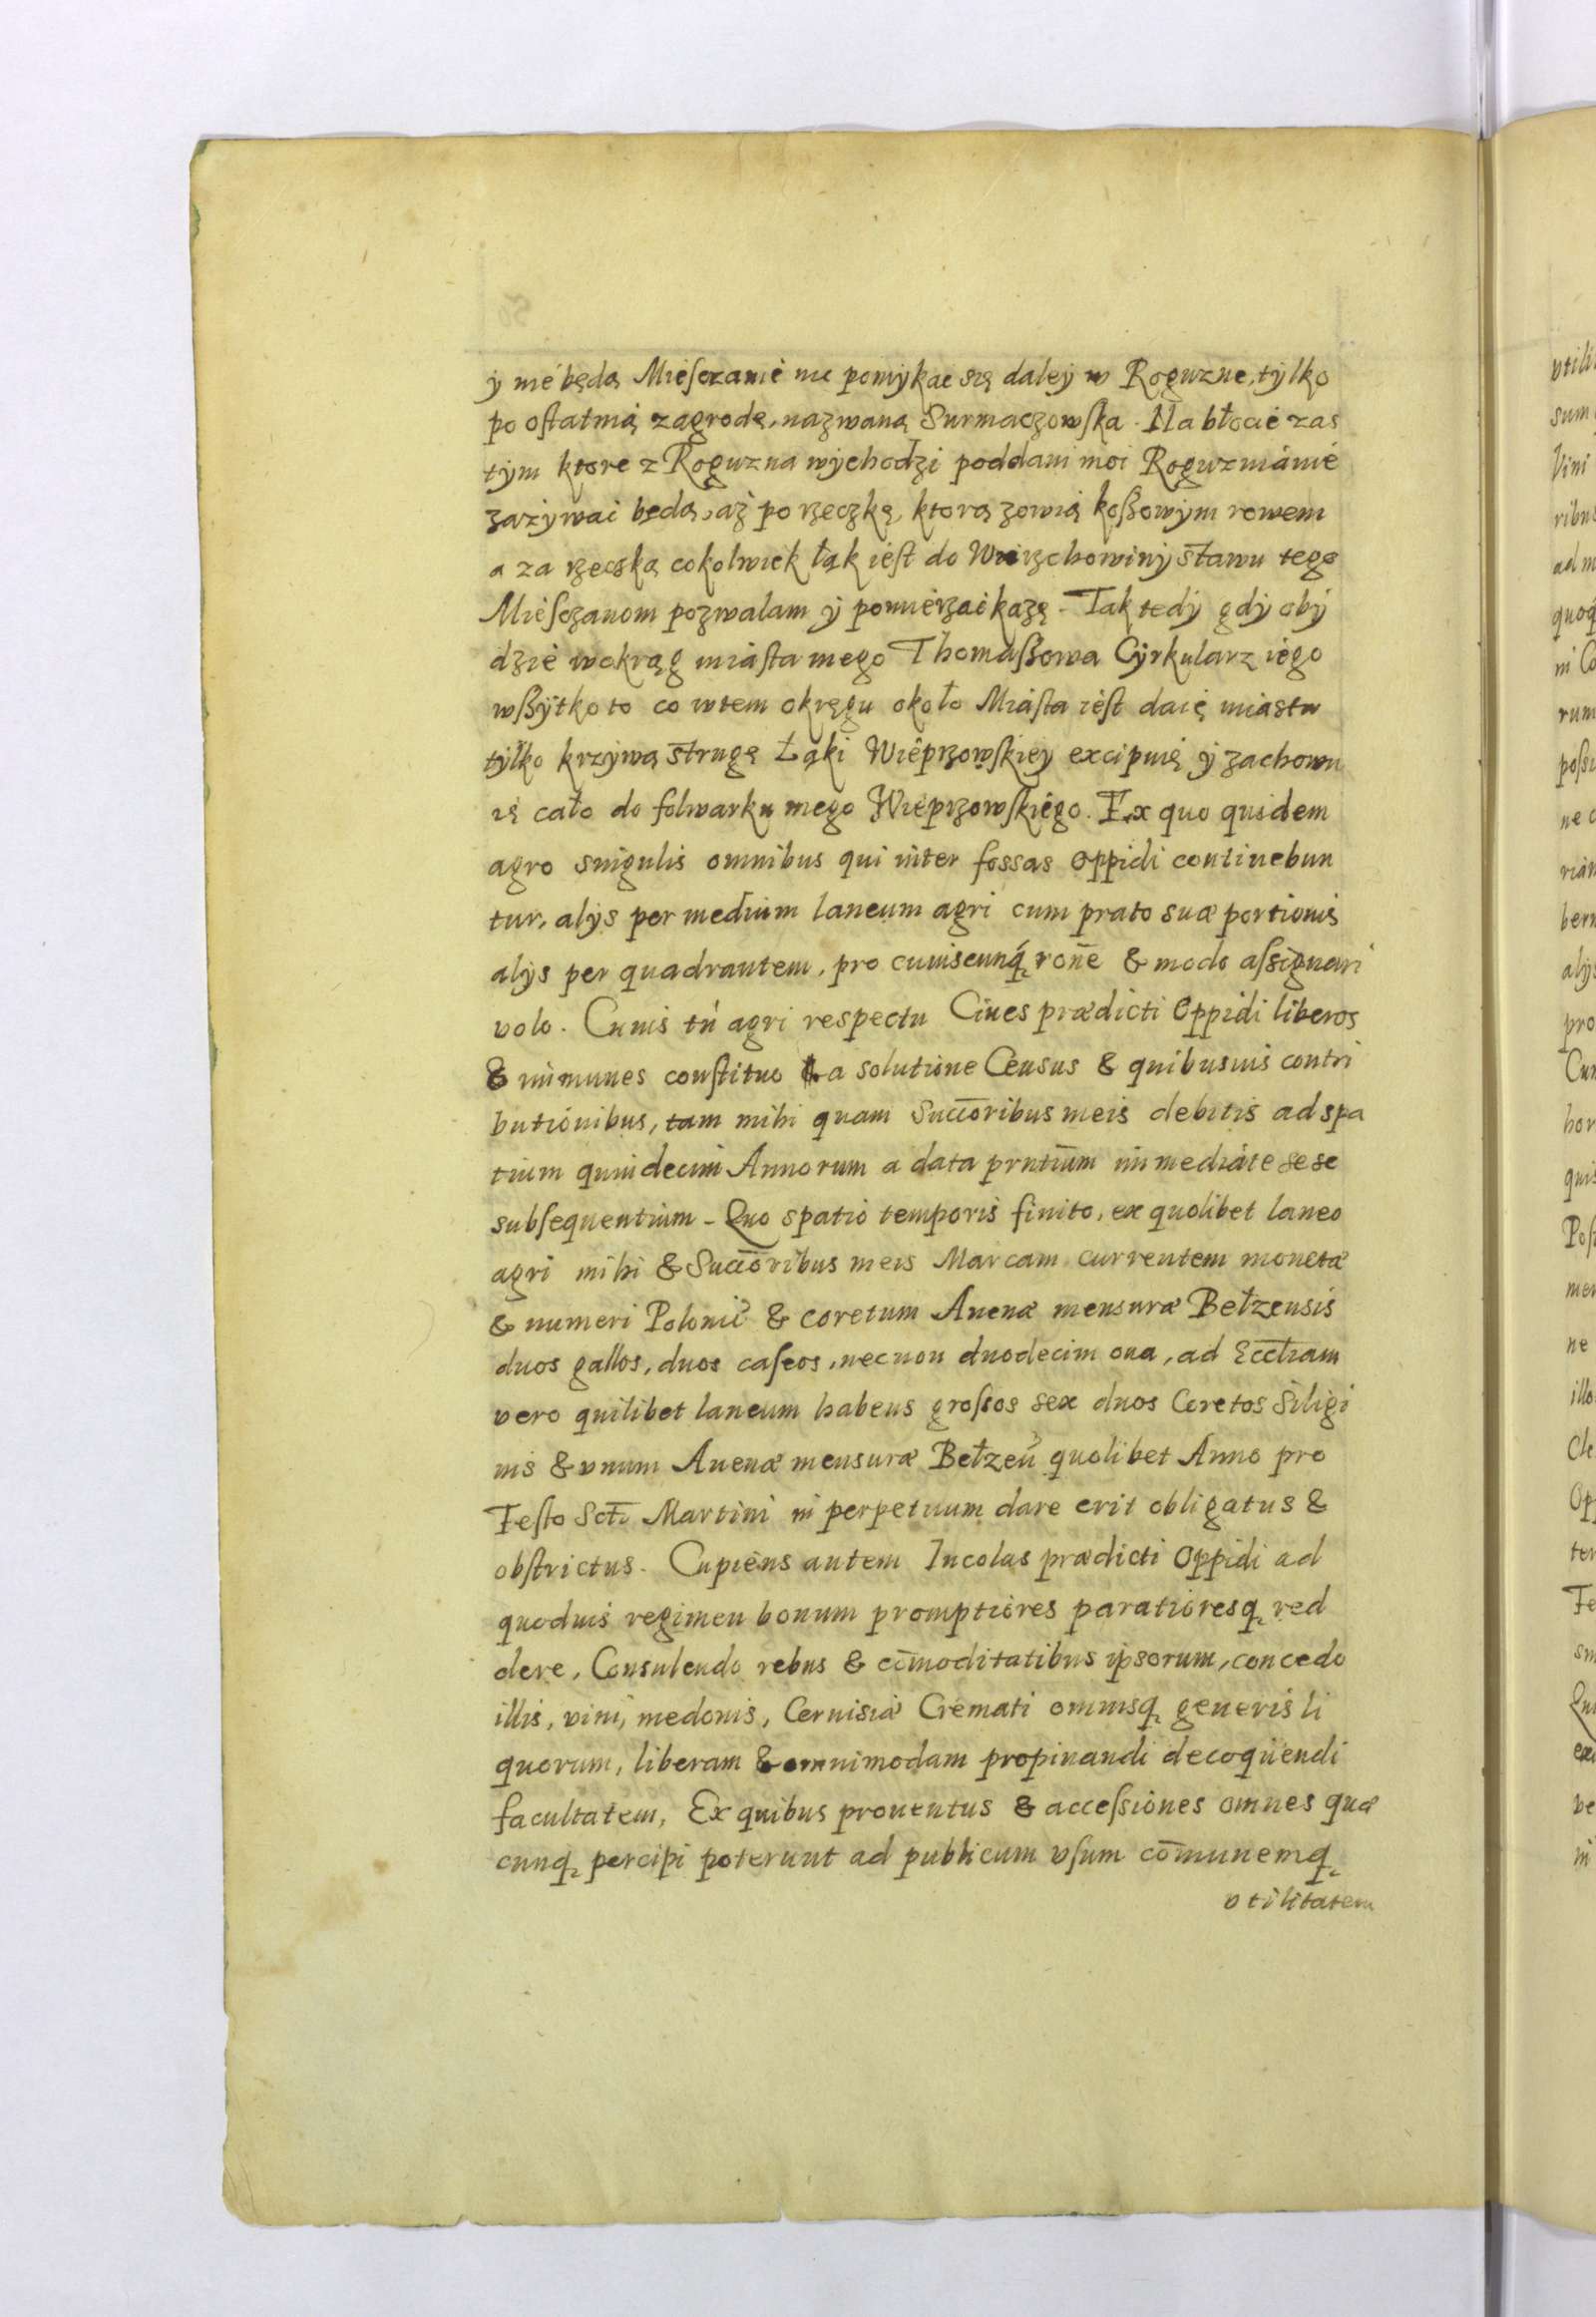 ÿ nié będą Mieſczanié nic pomÿkac się daleÿ w Roguzne, tÿlko
po oſtatnią zagrodę, nazwaną Surmaczowſka. Na błocié zas
tÿm ktore z Roguzna wÿchodzi poddani moi Roguzniánié
zazÿwai będą, aż po rzeczkę, ktorą zowią koßowÿm rowem
a za rzeczką cokolwiek łąk iéſt do Wirzchowinÿ stawu tego
Miéſczanom pozwalam ÿ pomiérzai każę. Tak tedÿ gdÿ obÿ
dzié wokrąg miáſta mego Thomaßowa Cÿrkularz iégo
wßÿtko to co wtem okręgu około Miáſta iéſt daię miastu
tÿlko krzÿwą strugę Łąki Wiéprzowſkieÿ excipuię ÿ zachowu
ię cało do folwarku mego Wiéprzowſkiégo. Ex quo quidem
agro singulis omnibus qui inter fossas Oppidi continebun
tur, alÿs per medium laneum agri cum prato suæ portionis
alÿs per quadrantem, pro cuiuscunq́; rone͞ & modo aſsignari
volo. Cuius tń agri respectu Ciues prædicti Oppidi liberos
& immunes conſtituo a solutione Census & quibusuis contri
butionibus, tam mihi quam Succ͞oribus meis debitis ad spa
tium quindecim Annorum a data prnti͞um immediáte sese
subſequentium - Quo spatio temporis finito, ex quolibet laneo
agri mihi & Succ͞oribus meis Marcam currentem monetæ
& numeri Poloni͞c & coretum Auenæ mensuræ Bełzensis
duos gallos, duos caſeos, necnon duodecim oua, ad Eccl͞iam
vero quilibet laneum habens groſsos sex duos Coretos Siligi
nis & vnum Auenæ mensuræ Bełzen͞ quolibet Anno pro
Feſto Sct͞i Martini in perpetuum dare erit obligatus &
obſtrictus. Cupiens autem Incolas prædicti Oppidi ad
quoduis regimen bonum promptiores paratioresq; red
dere, Consulendo rebus & com͞oditatibus ipsorum, concedo
illis, vini, medonis, Ceruisiæ Cremati omnisq; generis li
quorum, liberam & omnimodam propinandi decoquendi
facultatem, Ex quibus prouentus & acceſsiones omnes quæ
cunq; percipi poterunt ad publicum vſum co͞munemq;
vtilitatem